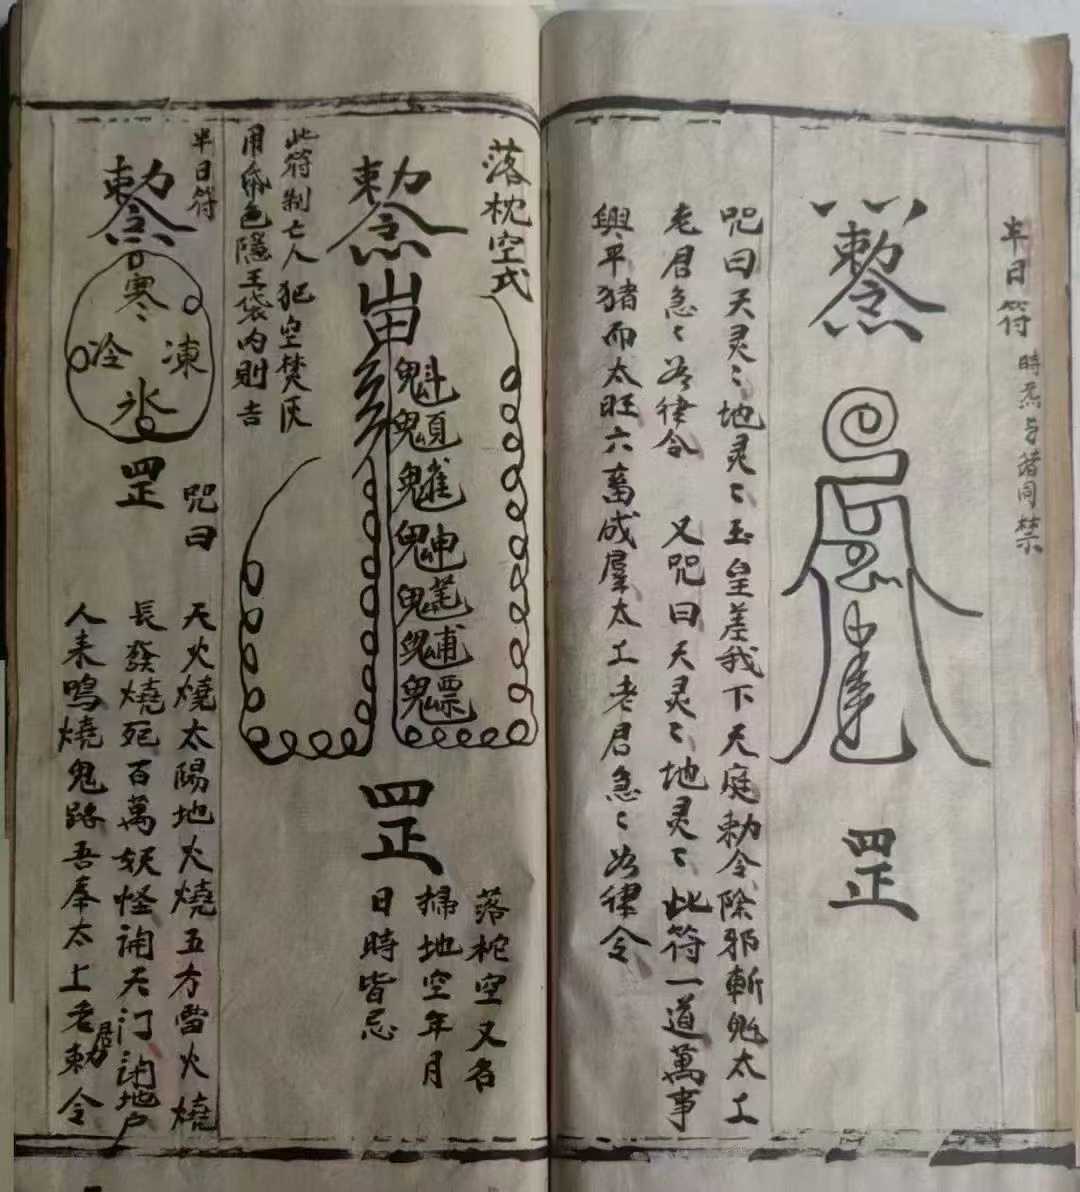 半日符
時煞与豬同禁
勅令
罡
咒曰天灵〻地灵〻玉皇差我下天庭勅令除邪斬鬼太上
老君急〻如律令 又咒曰天灵〻地灵〻此符一道萬事
興平猪而太旺六畜成羣太上老君急〻如律令
落枕空式
勅令
罡
落枕空又名
掃地空年月
日時皆忌
此符制亡人犯空焚灰
用 色隱玉袋內則吉
半日符
勅令
寒
冷 凍
氷
罡
咒曰 天火燒太陽地火燒五方雷火燒
長發燒死百萬妖怪 天门 地户
人来鳴燒鬼路吾奉太上老君勅令